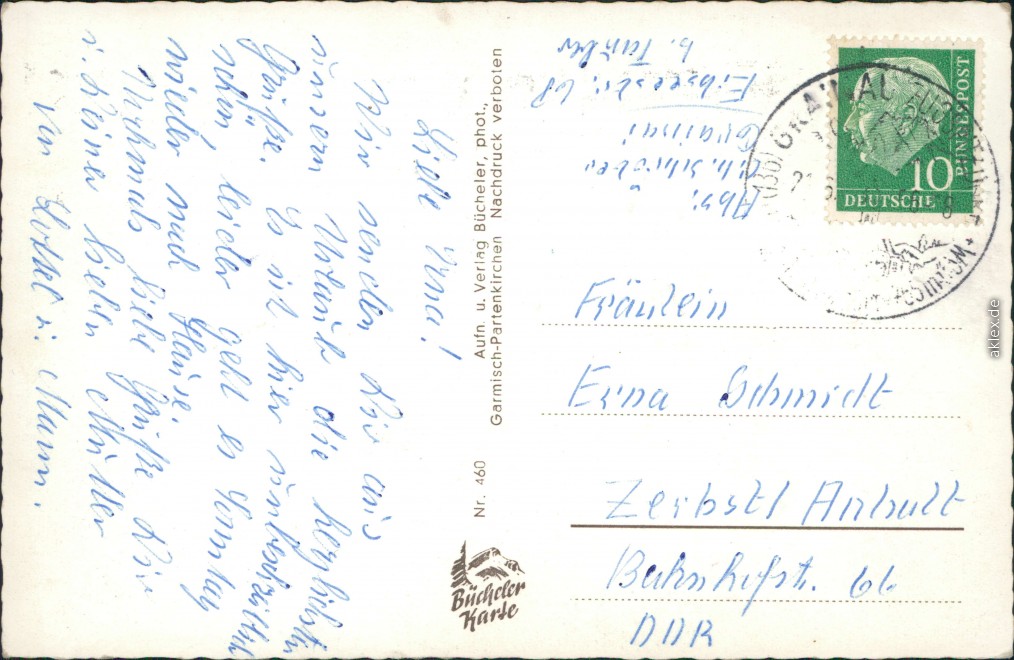 Liebe Erna!
Wir senden Dir aus
unserem Urlaub die herzlichsten
Grüße. Es ist hier unbeschreiblich
schön, leider geht es Sonntag
wieder nach Hause.
Nochmals liebe Grüße Dir
u. Deiner lieben Mutter
von Lotte u. Mann.
Aufn. u. Verlag Bücheler, phot.,
Garmisch-Partenkirchen Nachdruck verboten
Nr. 460
Bücheler
Karte
Abs.
Schröder
Grainau
Eibseestr. 68
b.
DEUTSCHE
BUNDESPOST
10
(13b) GRAINAU
Fräulein
Erna Schmidt
Zerbst/ Anhalt
Bahnhofstr. 66
DDR
aklex.de